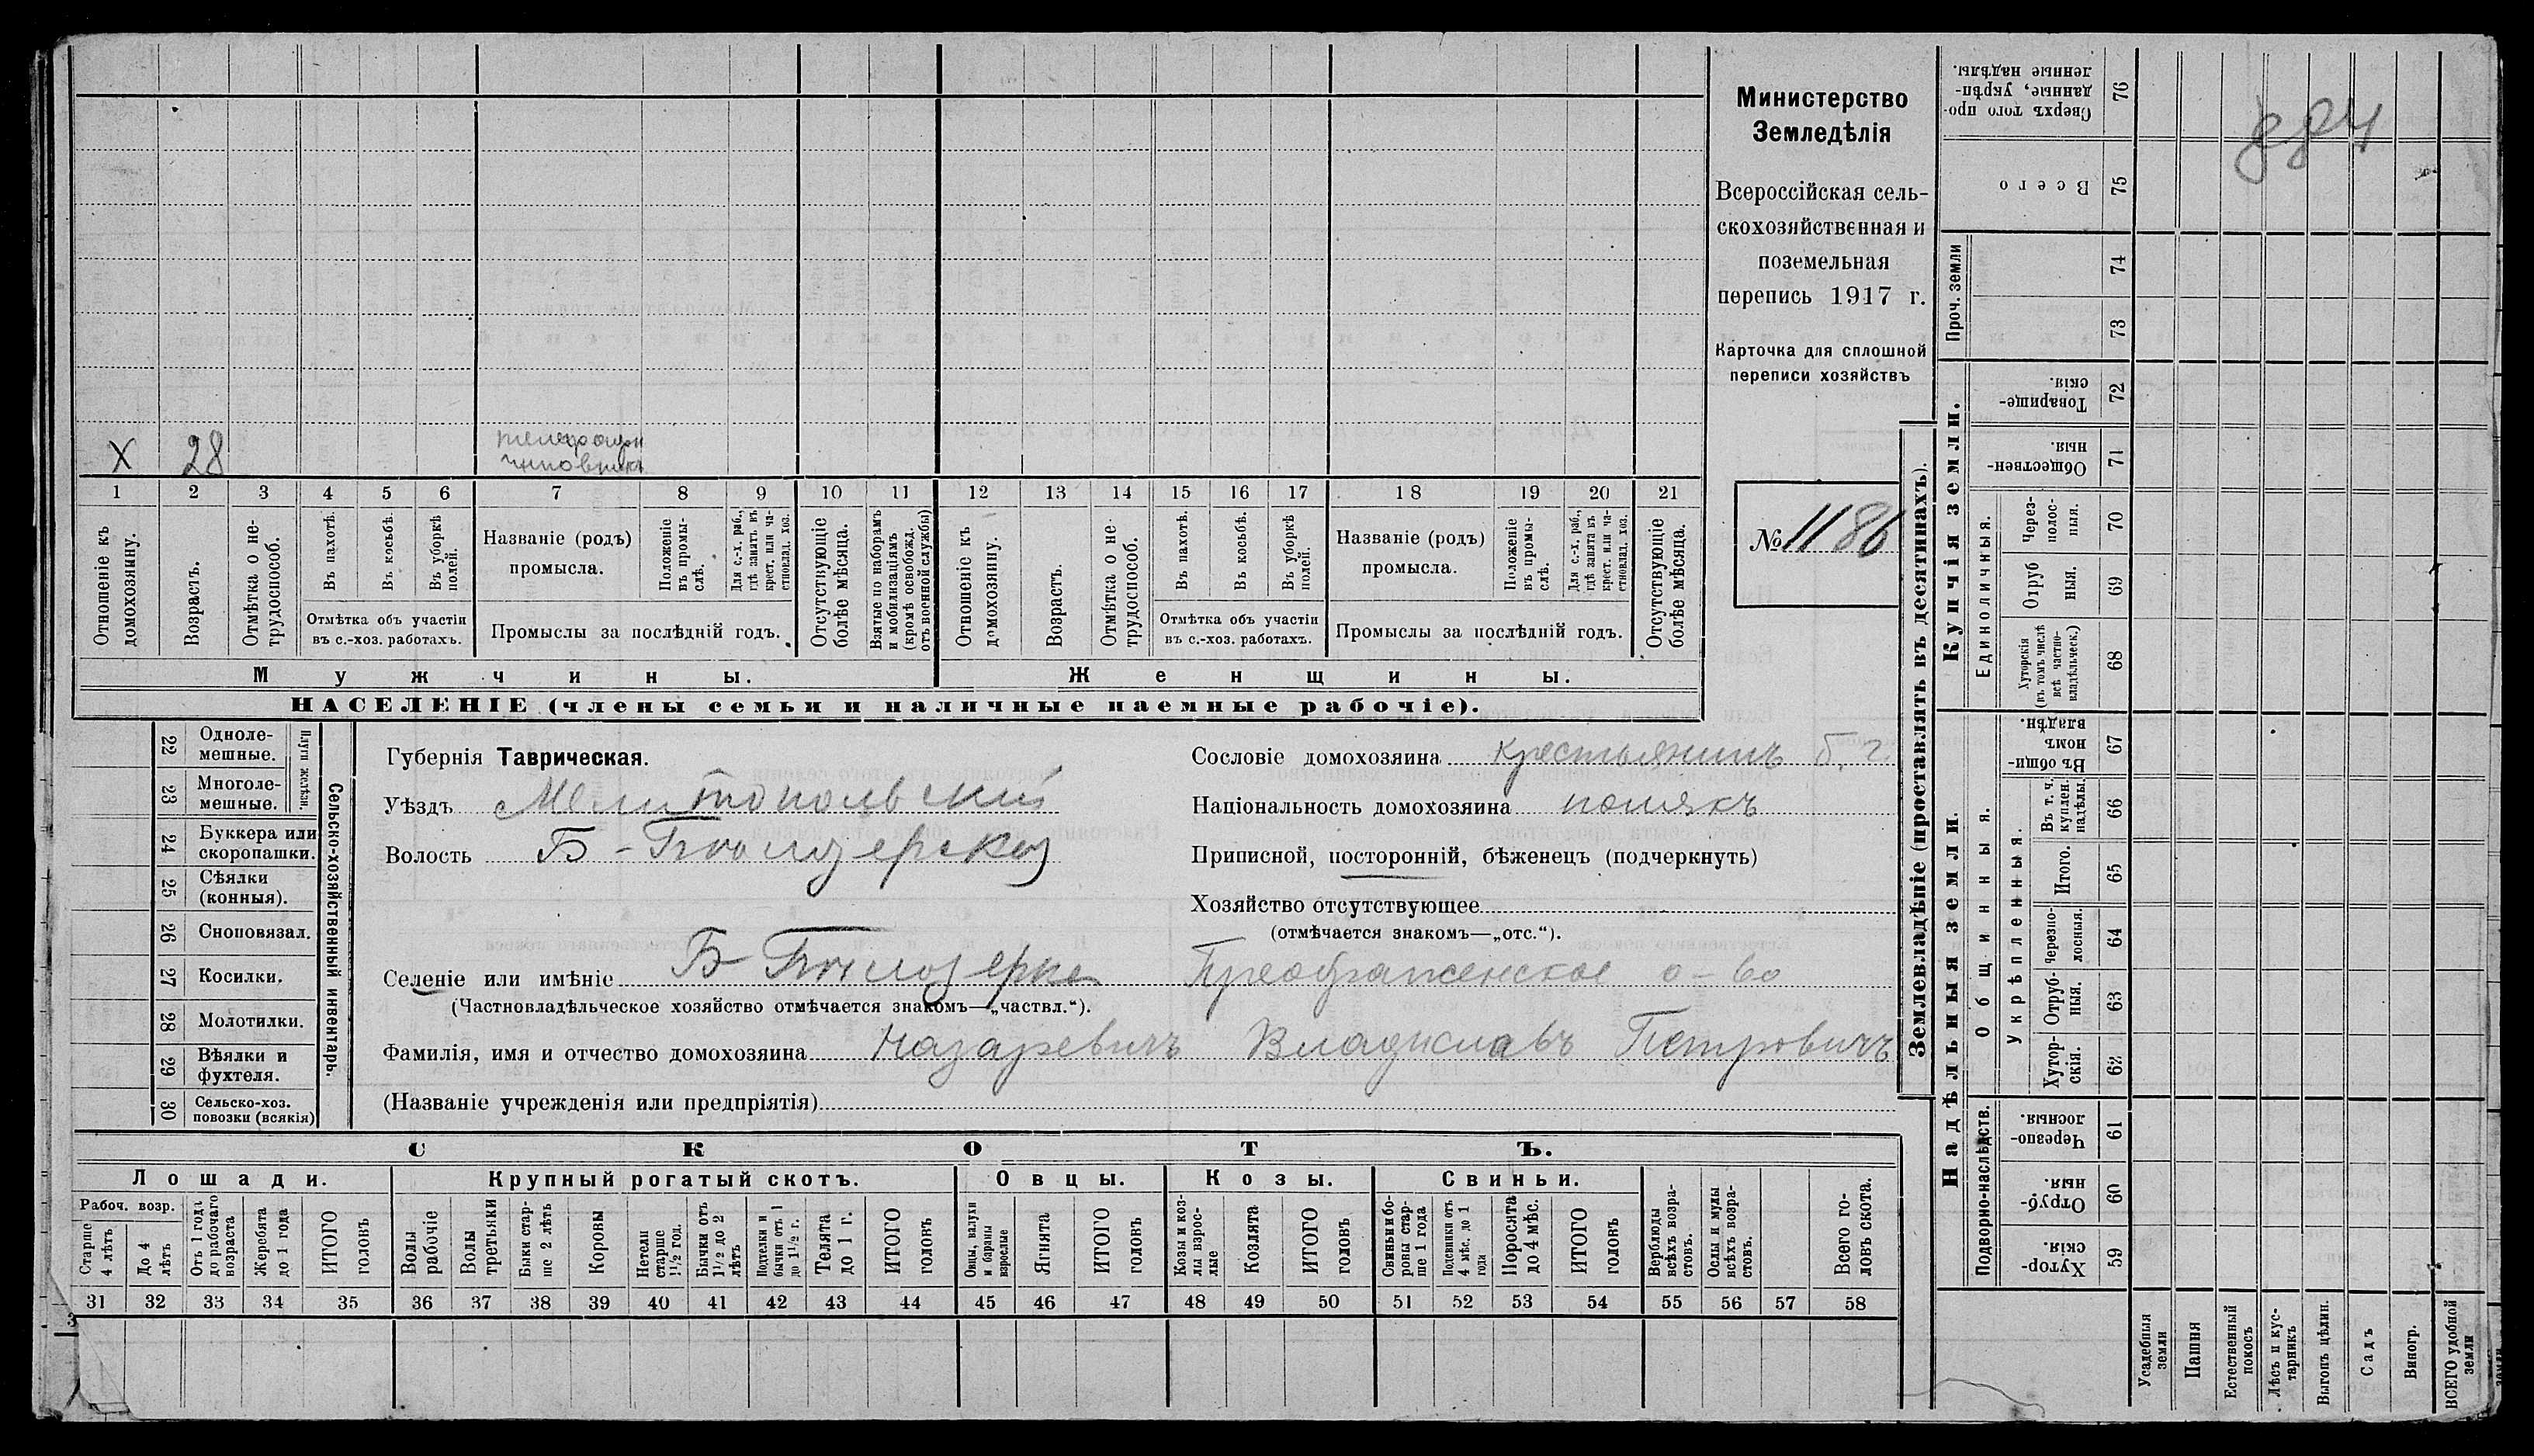 Министерство
Земледѣлія
Всероссійская сель-
скохозяйственная и
поземельная
перепись 1917 г.
Карточка для сплошной
переписи хозяйствъ
№ 1186
884
X 28
чиновникъ
1 2 3 4 5 6 7 8 9 10 11 12 13 14 15 16 17 18 19 20 21
Отношеніе къ домохозяину.
Возрастъ.
Отмѣтка о не-трудоспособ.
Въ пахотѣ.
Въ косьбѣ.
Въ уборкѣ полей.
Отмѣтка объ участіи
въ с.-хоз. работахъ.
Названіе (родъ)
промысла.
Положеніе въ промы-слѣ.
Для с.-х. раб., гдѣ занятъ въ крест. или ча-стновлад. хоз.
Промыслы за послѣдній годъ.
Отсутствующіе болѣе мѣсяца.
Взятые по наборамъ и мобилизаціямъ (кромѣ освобожд. отъ военной службы)
Отношеніе къ домохозяину.
Возрастъ.
Отмѣтка о не-трудоспособ.
Въ пахотѣ.
Въ косьбѣ.
Въ уборкѣ полей.
Отмѣтка объ участіи
въ с.-хоз. работахъ.
Названіе (родъ)
промысла.
Положеніе въ промы-слѣ.
Для с.-х. раб., гдѣ занята въ крест. или ча-стновлад. хоз.
Промыслы за послѣдній годъ.
Отсутствующіе болѣе мѣсяца.
Мужчины. Женщины.
НАСЕЛЕНІЕ (члены семьи и наличные наемные рабочіе).
22 Одноле-мешные.
23 Многоле-мешные.
Плуги желѣзн.
24 Буккера или скоропашки.
25 Сѣялки (конныя).
26 Сноповязал.
27 Косилки.
28 Молотилки.
29 Вѣялки и фухтеля.
30 Сельско-хоз. повозки (всякія)
Сельско-хозяйственный инвентарь.
Губернія Таврическая.
Уѣздъ Мелитопольскій
Волость Б-Бѣлозерская
Селеніе или имѣніе Б-Бѣлозерка Преображенское о-во
(Частновладѣльческое хозяйство отмѣчается знакомъ—„частвл.“).
Фамилія, имя и отчество домохозяина Назаревичъ Владиславъ Петровичъ
(Названіе учрежденія или предпріятія)
Сословіе домохозяина крестьянинъ б. г.
Національность домохозяина полякъ
Приписной, посторонній, бѣженецъ (подчеркнуть)
Хозяйство отсутствующее
(отмѣчается знакомъ—„отс.“).
СКОТЪ.
Лошади. Крупный рогатый скотъ. Овцы. Козы. Свиньи.
Рабоч. возр.
Старше 4 лѣтъ
До 4 лѣтъ
Отъ 1 года до рабочаго возраста
Жеребята до 1 года
ИТОГО головъ
Волы рабочіе
Волы третьяки
Быки стар-ше 2 лѣтъ
Коровы
Нетели старше 1½ год.
Бычки отъ 1½ до 2 лѣтъ
Подтелки и бычки отъ 1 до 1½ г.
Телята до 1 г.
ИТОГО головъ
Овцы, валухи и бараны взрослые
Ягнята
ИТОГО головъ
Козы и коз-лы взрос-лые
Козлята
ИТОГО головъ
Свиньи и бо-ровы стар-ше 1 года
Подсвинки отъ 4 мѣс. до 1 года
Поросята до 4 мѣс.
ИТОГО головъ
Верблюды всѣхъ возра-стовъ.
Ослы и мулы всѣхъ возра-стовъ.
Всего го-ловъ скота.
31 32 33 34 35 36 37 38 39 40 41 42 43 44 45 46 47 48 49 50 51 52 53 54 55 56 57 58
Землевладѣніе (проставлять въ десятинахъ).
Купчія земли.
Надѣльныя земли.
Проч. земли
Единоличныя.
Общинныя.
Укрѣпленныя.
Подворно-наслѣдств.
Сверхъ того про-данные, укрѣп-ленные надѣлы. 76
Всего 75
74
73
Товарище-скія. 72
Обществен-ныя 71
Через-полос-ныя. 70
Отруб ныя. 69
Хуторскія (въ томъ числѣ всѣ частно-владѣльческ.) 68
Въ общи-номъ владѣн. 67
Въ т. ч. куплен. надѣлы. 66
Итого. 65
Черезпо-лосныя. 64
Отруб-ныя. 63
Хутор-скія. 62
Черезпо-лосныя. 61
Отруб-ныя. 60
Хутор-скія. 59
Усадебныя земли
Пашня
Естественный покосъ
Лѣсъ и кус-тарникъ
Выгонъ цѣлин.
Садъ
Виногр.
ВСЕГО удобной земли